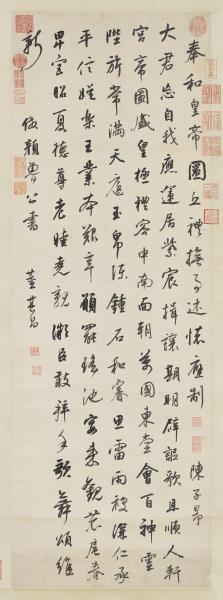 奉和皇帝圜丘禮撫事述懷應制 陳子昂
大君忘自我應運居紫宸揖讓期明辟謳歌且順人軒
宮帝圖盛皇極禮容申南面朝萬國東堂會百神雲
陛旂常滿天庭玉帛陳鐘石和睿思雷雨被深仁承
平信娛樂王業本艱辛願罷瑤池宴來觀農扈春
卑宮昭夏德尊老睦堯親微臣敢拜手歌舞頌維
新
倣顏魯公書 董其昌